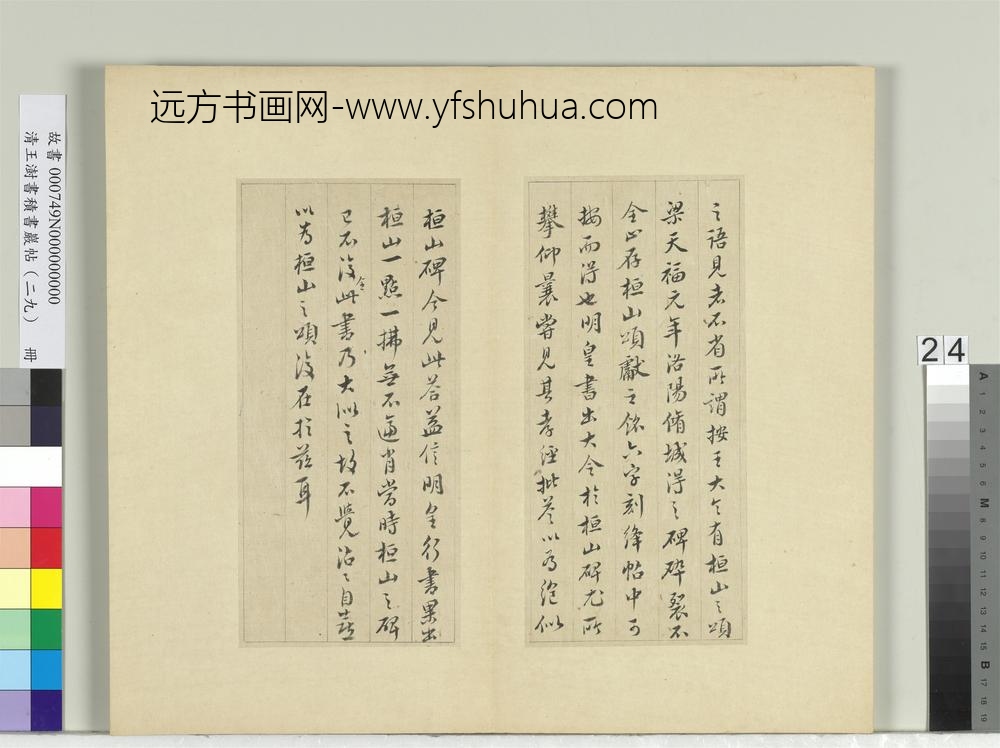 远方书画网-www.yfshuhua.com
之語見者不省所謂按王大令有桓山之頌
梁天福元年洛陽脩城得之碑碎裂不
全止存桓山頌獻之銘六字刻絳帖中可
按而得也明皇書出大令於桓山碑尤所
攀仰曩嘗見其孝經批答以為絶似
桓山碑今見此答益信明皇行書果出
桓山一點一拂無不逼肖當時桓山之碑
已不復全此書乃大似之故不覺沾沾自喜
以為桓山之頌復在於茲耳
故書 000749N000000000
清王澍書積書巖帖(二九) 冊
24
A 1 2 3 4 5 6 M 8 9 10 11 12 13 14 15 B 17 18 19